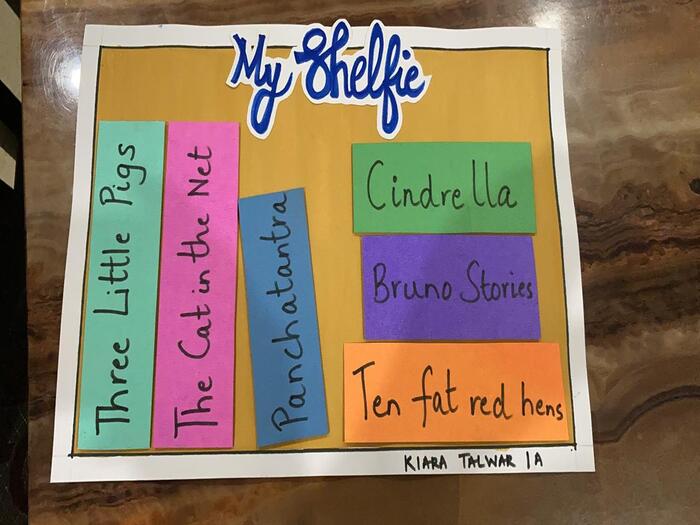 My Shelfie
Three Little Pigs
The Cat in the Net
Panchatantra
Cindrella
Bruno Stories
Ten fat red hens
KIARA TALWAR 1A